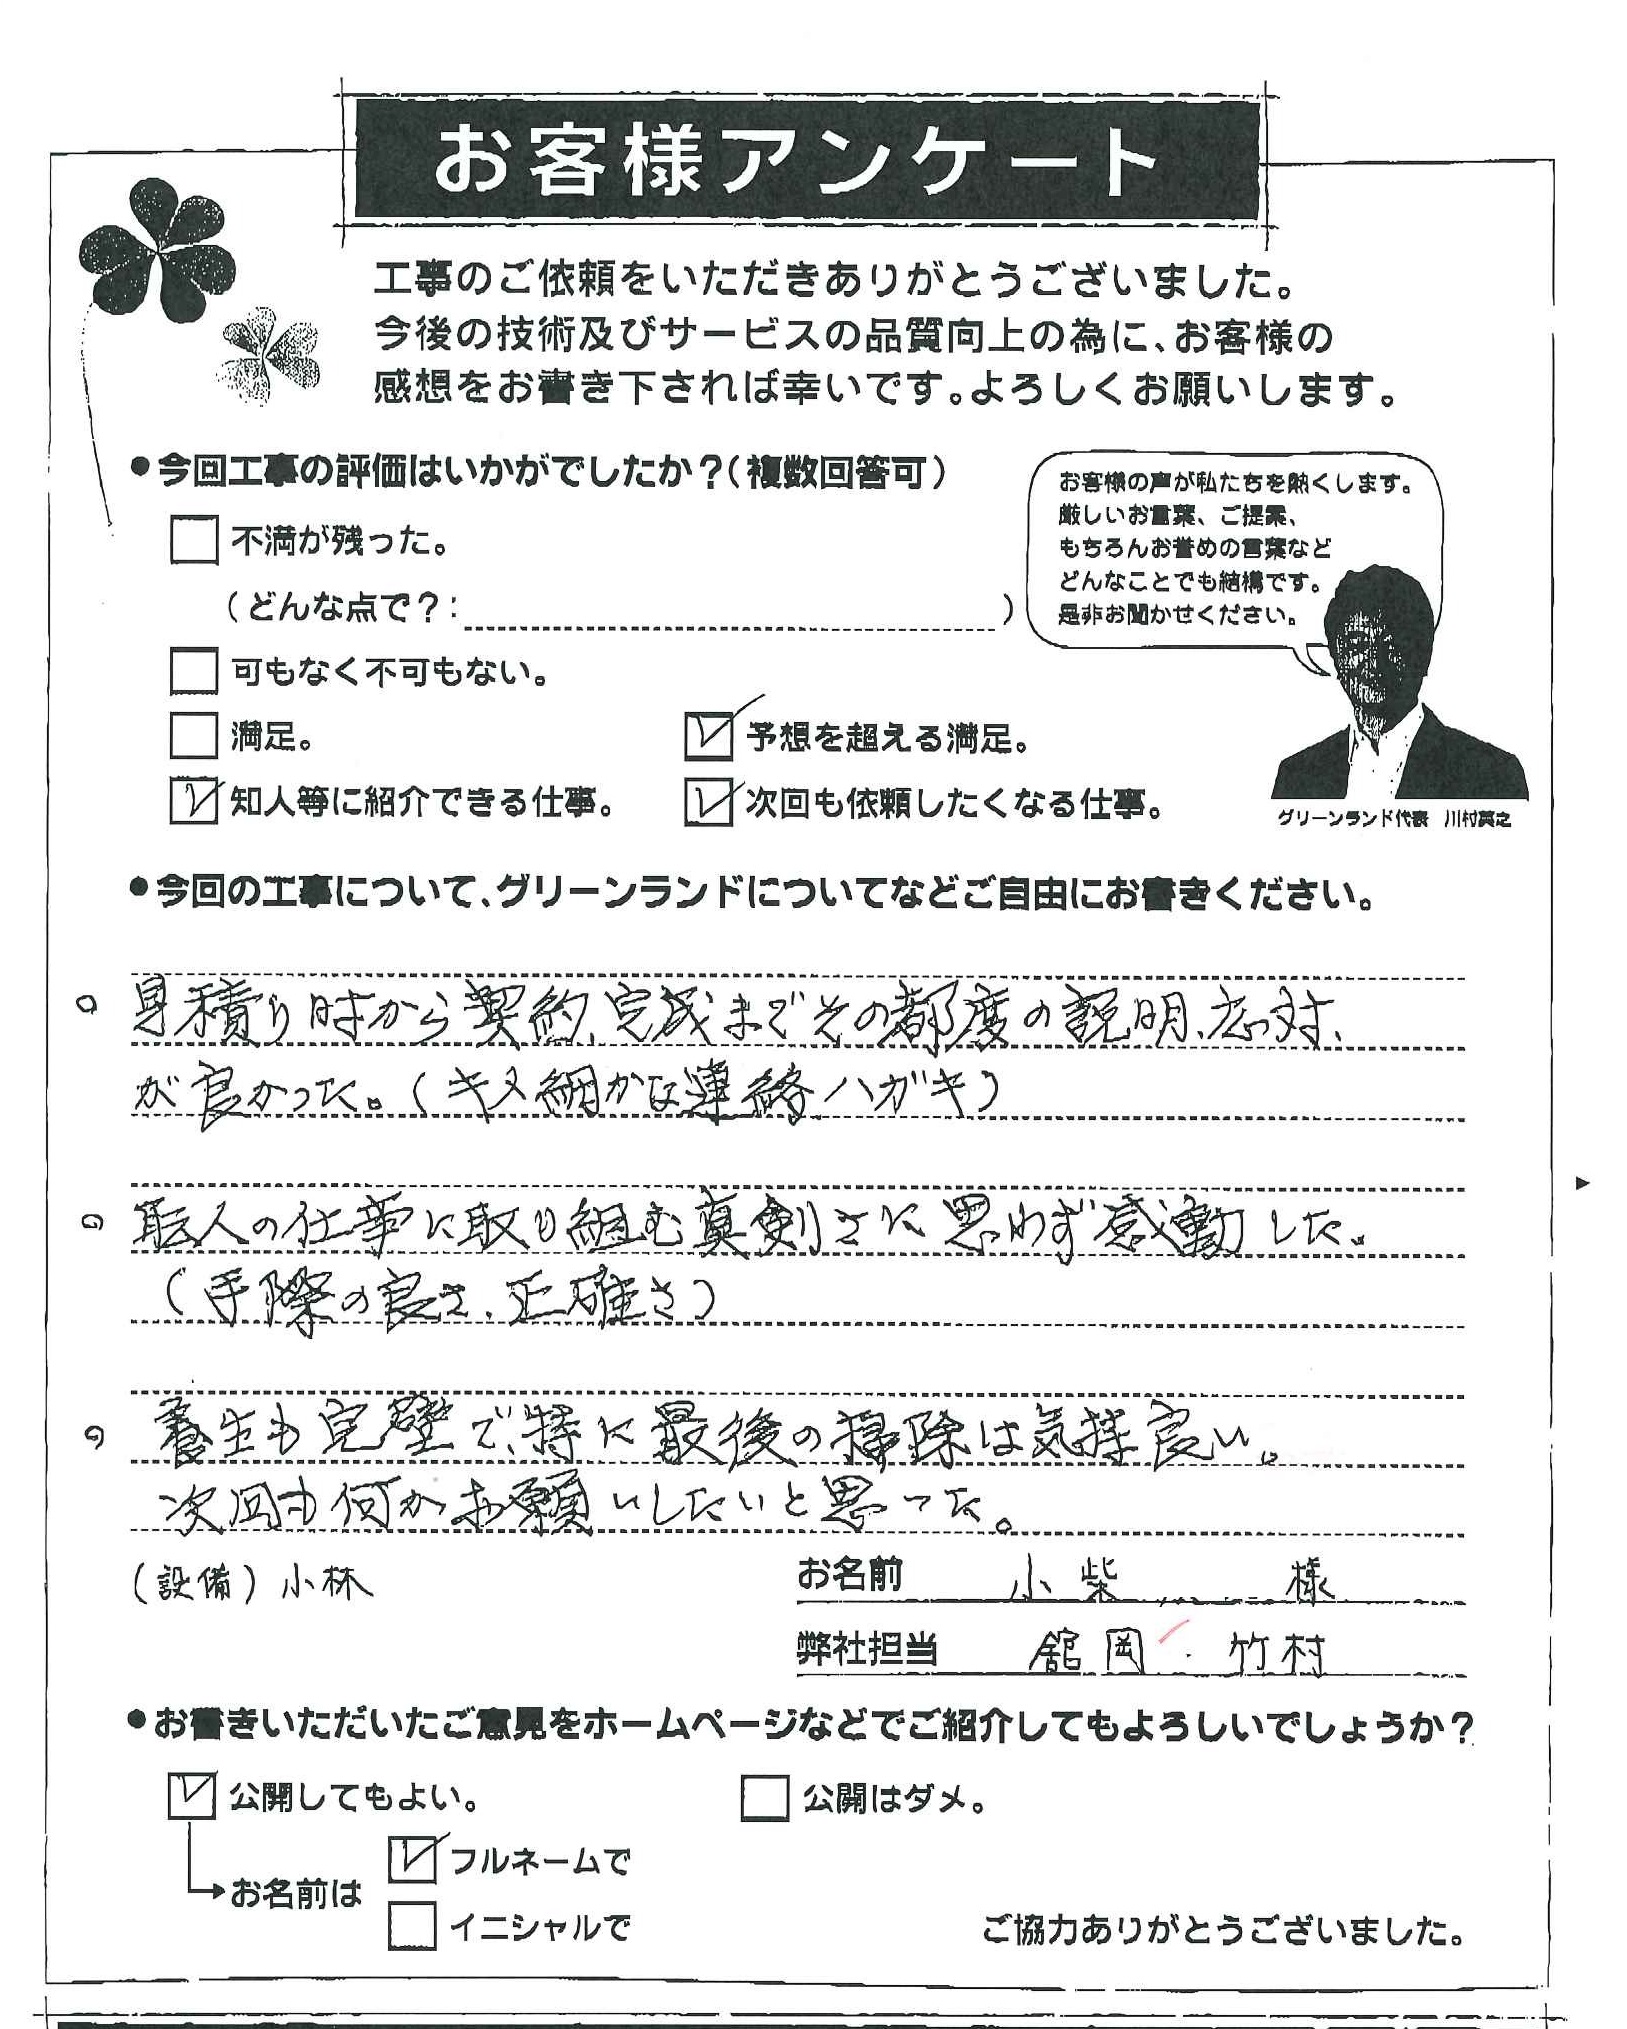 お客様アンケート
工事のご依頼をいただきありがとうございました。
今後の技術及びサービスの品質向上の為に、お客様の
感想をお書き下されば幸いです。よろしくお願いします。
●今回工事の評価はいかがでしたか?(複数回答可)
不満が残った。
(どんな点で?: )
可もなく不可もない。
満足。
予想を超える満足。
知人等に紹介できる仕事。
次回も依頼したくなる仕事。
お客様の声が私たちを熱くします。
厳しいお言葉、ご提案、
もちろんお誉めの言葉など
どんなことでも結構です。
是非お聞かせください。
グリーンランド代表 川村英之
●今回の工事について、グリーンランドについてなどご自由にお書きください。
○ 見積り時から契約、完成までその都度の説明、応対、
が良かった。(キメ細かな連絡ハガキ)
○ 職人の仕事に取り組む真剣さに思わず感動した。
(手際の良さ、正確さ)
○ 養生も完璧で、特に最後の掃除は気持良い。
次回も何かお願いしたいと思った。
(設備) 小林
お名前 小柴 様
弊社担当 舘岡・竹村
●お書きいただいたご意見をホームページなどでご紹介してもよろしいでしょうか?
公開してもよい。
公開はダメ。
お名前は
フルネームで
イニシャルで
ご協力ありがとうございました。